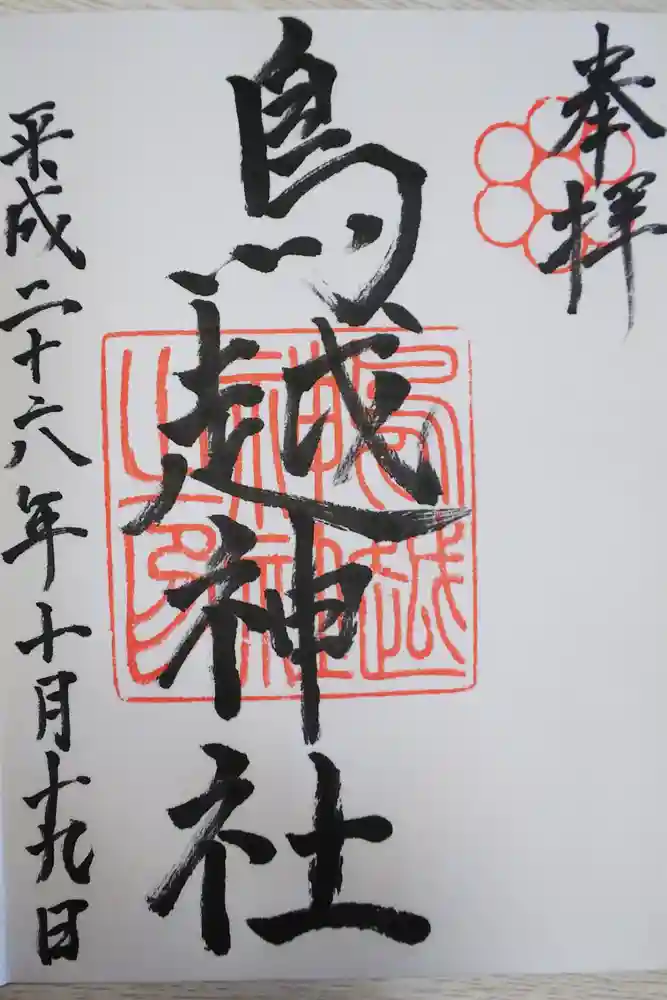 奉拝
鳥越神社
鳥越
神社
之印
平成二十六年十月十九日